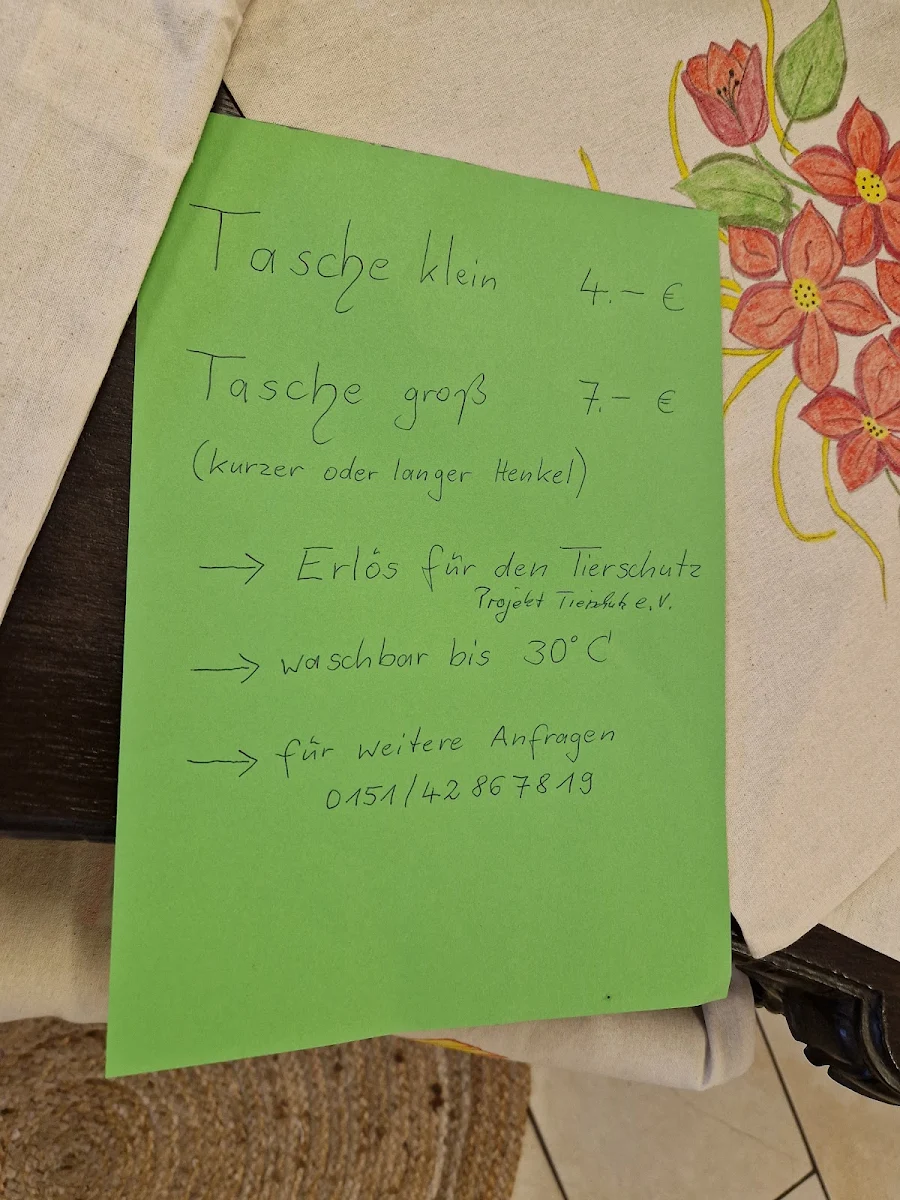 Tasche klein 4.- €
Tasche groß 7.- €
(kurzer oder langer Henkel)
→ Erlös für den Tierschutz
Projekt Tierschutz e.V.
→ waschbar bis 30°C
→ für weitere Anfragen
0151/42867819